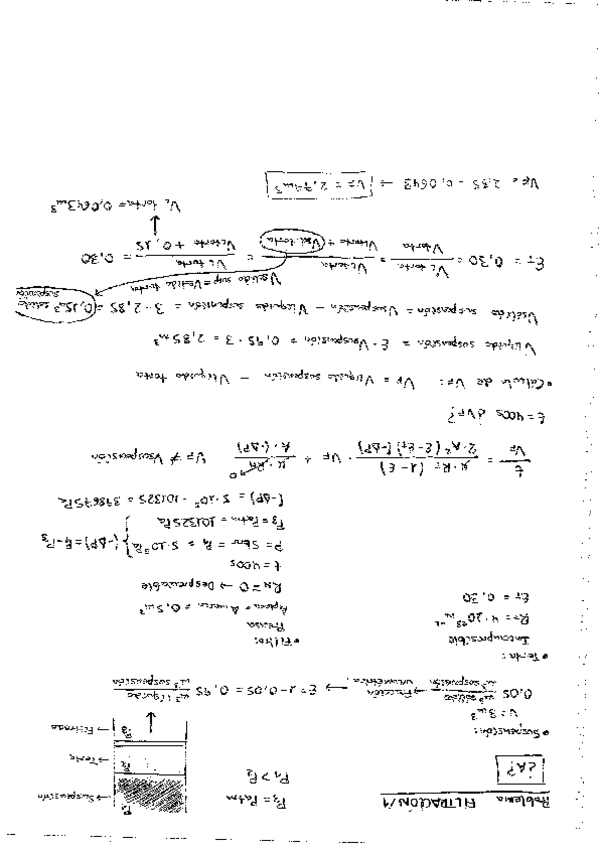 Problema FILTRACIÓN/1
¿A?
P3 = Patm
P1 > P2
P1 → Suspensión
P2 → Torta
P3 → Filtrado
• Suspensión:
V = 3 m³
0,05 m³ sólido / m³ suspensión → Fracción volumétrica → E = 1-0,05 = 0,95 m³ líquido / m³ suspensión
• Torta:
Incompresible
ET = 0,30
• Filtro:
Prensa
Aplaca = Amarco = 0,5 m²
RM ≈ 0 → Despreciable
t = 400s
P = 5 bar = P1 = 5·10⁵ Pa
P3 = Patm = 101325 Pa
(-ΔP) = P1-P3
(-ΔP) = 5·10⁵ - 101325 = 398675 Pa
t / VF = μ·RT·(1-E) / 2·A²·(E-ET)(-ΔP) · VF + μ·RM / A·(-ΔP) → 0 VF ≠ Vsuspensión
t = 400s ¿VF?
• Cálculo de VF: VF = Vlíquido suspensión - Vlíquido torta
Vlíquido suspensión = E · Vsuspensión = 0,95 · 3 = 2,85 m³
Vsólido suspensión = Vsuspensión - Vlíquido suspensión = 3 - 2,85 = 0,15 m³ sólido suspensión
Vsólido sup = Vsólido torta
ET = 0,30 = VL torta / Vtorta = VL torta / VL torta + Vsol. torta = VL torta / VL torta + 0,15 = 0,30
VL torta = 0,0643 m³
VF = 2,85 - 0,0643 → VF = 2,79 m³